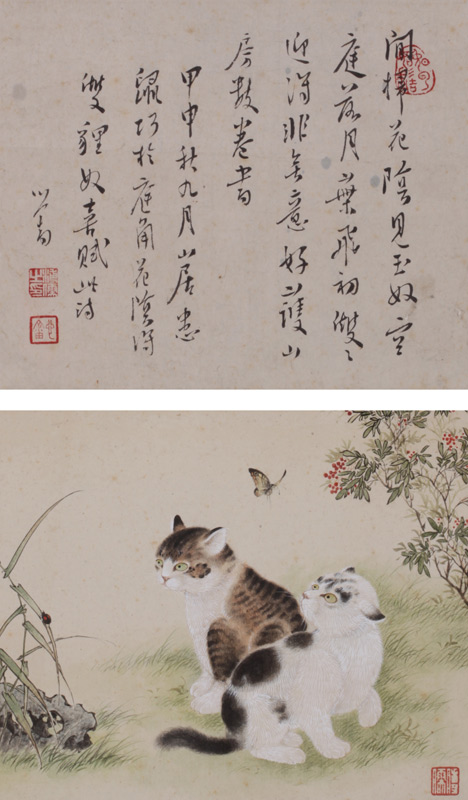 閒擇花陰見玉奴空
庭落月葉飛初雙々
迎得非無意好護山
房數卷書
甲申秋九月山居患
鼠巧於庭角花陰得
雙貍奴喜賦此詩
心畬